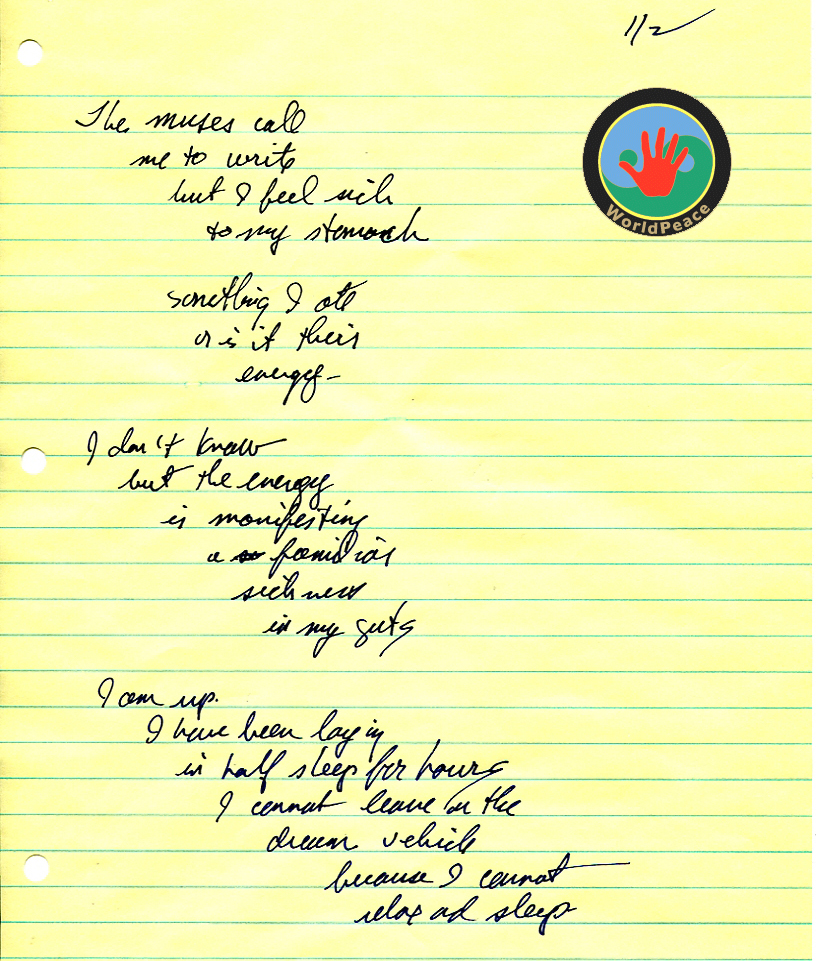 1/2
The muses call
me to write
but I feel sick
to my stomach
WorldPeace
something I ate
or is it their
energy-
I don't know
but the energy
is manifesting
a familiar
sickness
in my guts
I am up.
I have been laying
in half sleep for hours
I cannot leave in the
dream vehicle
because I cannot
relax ad sleep